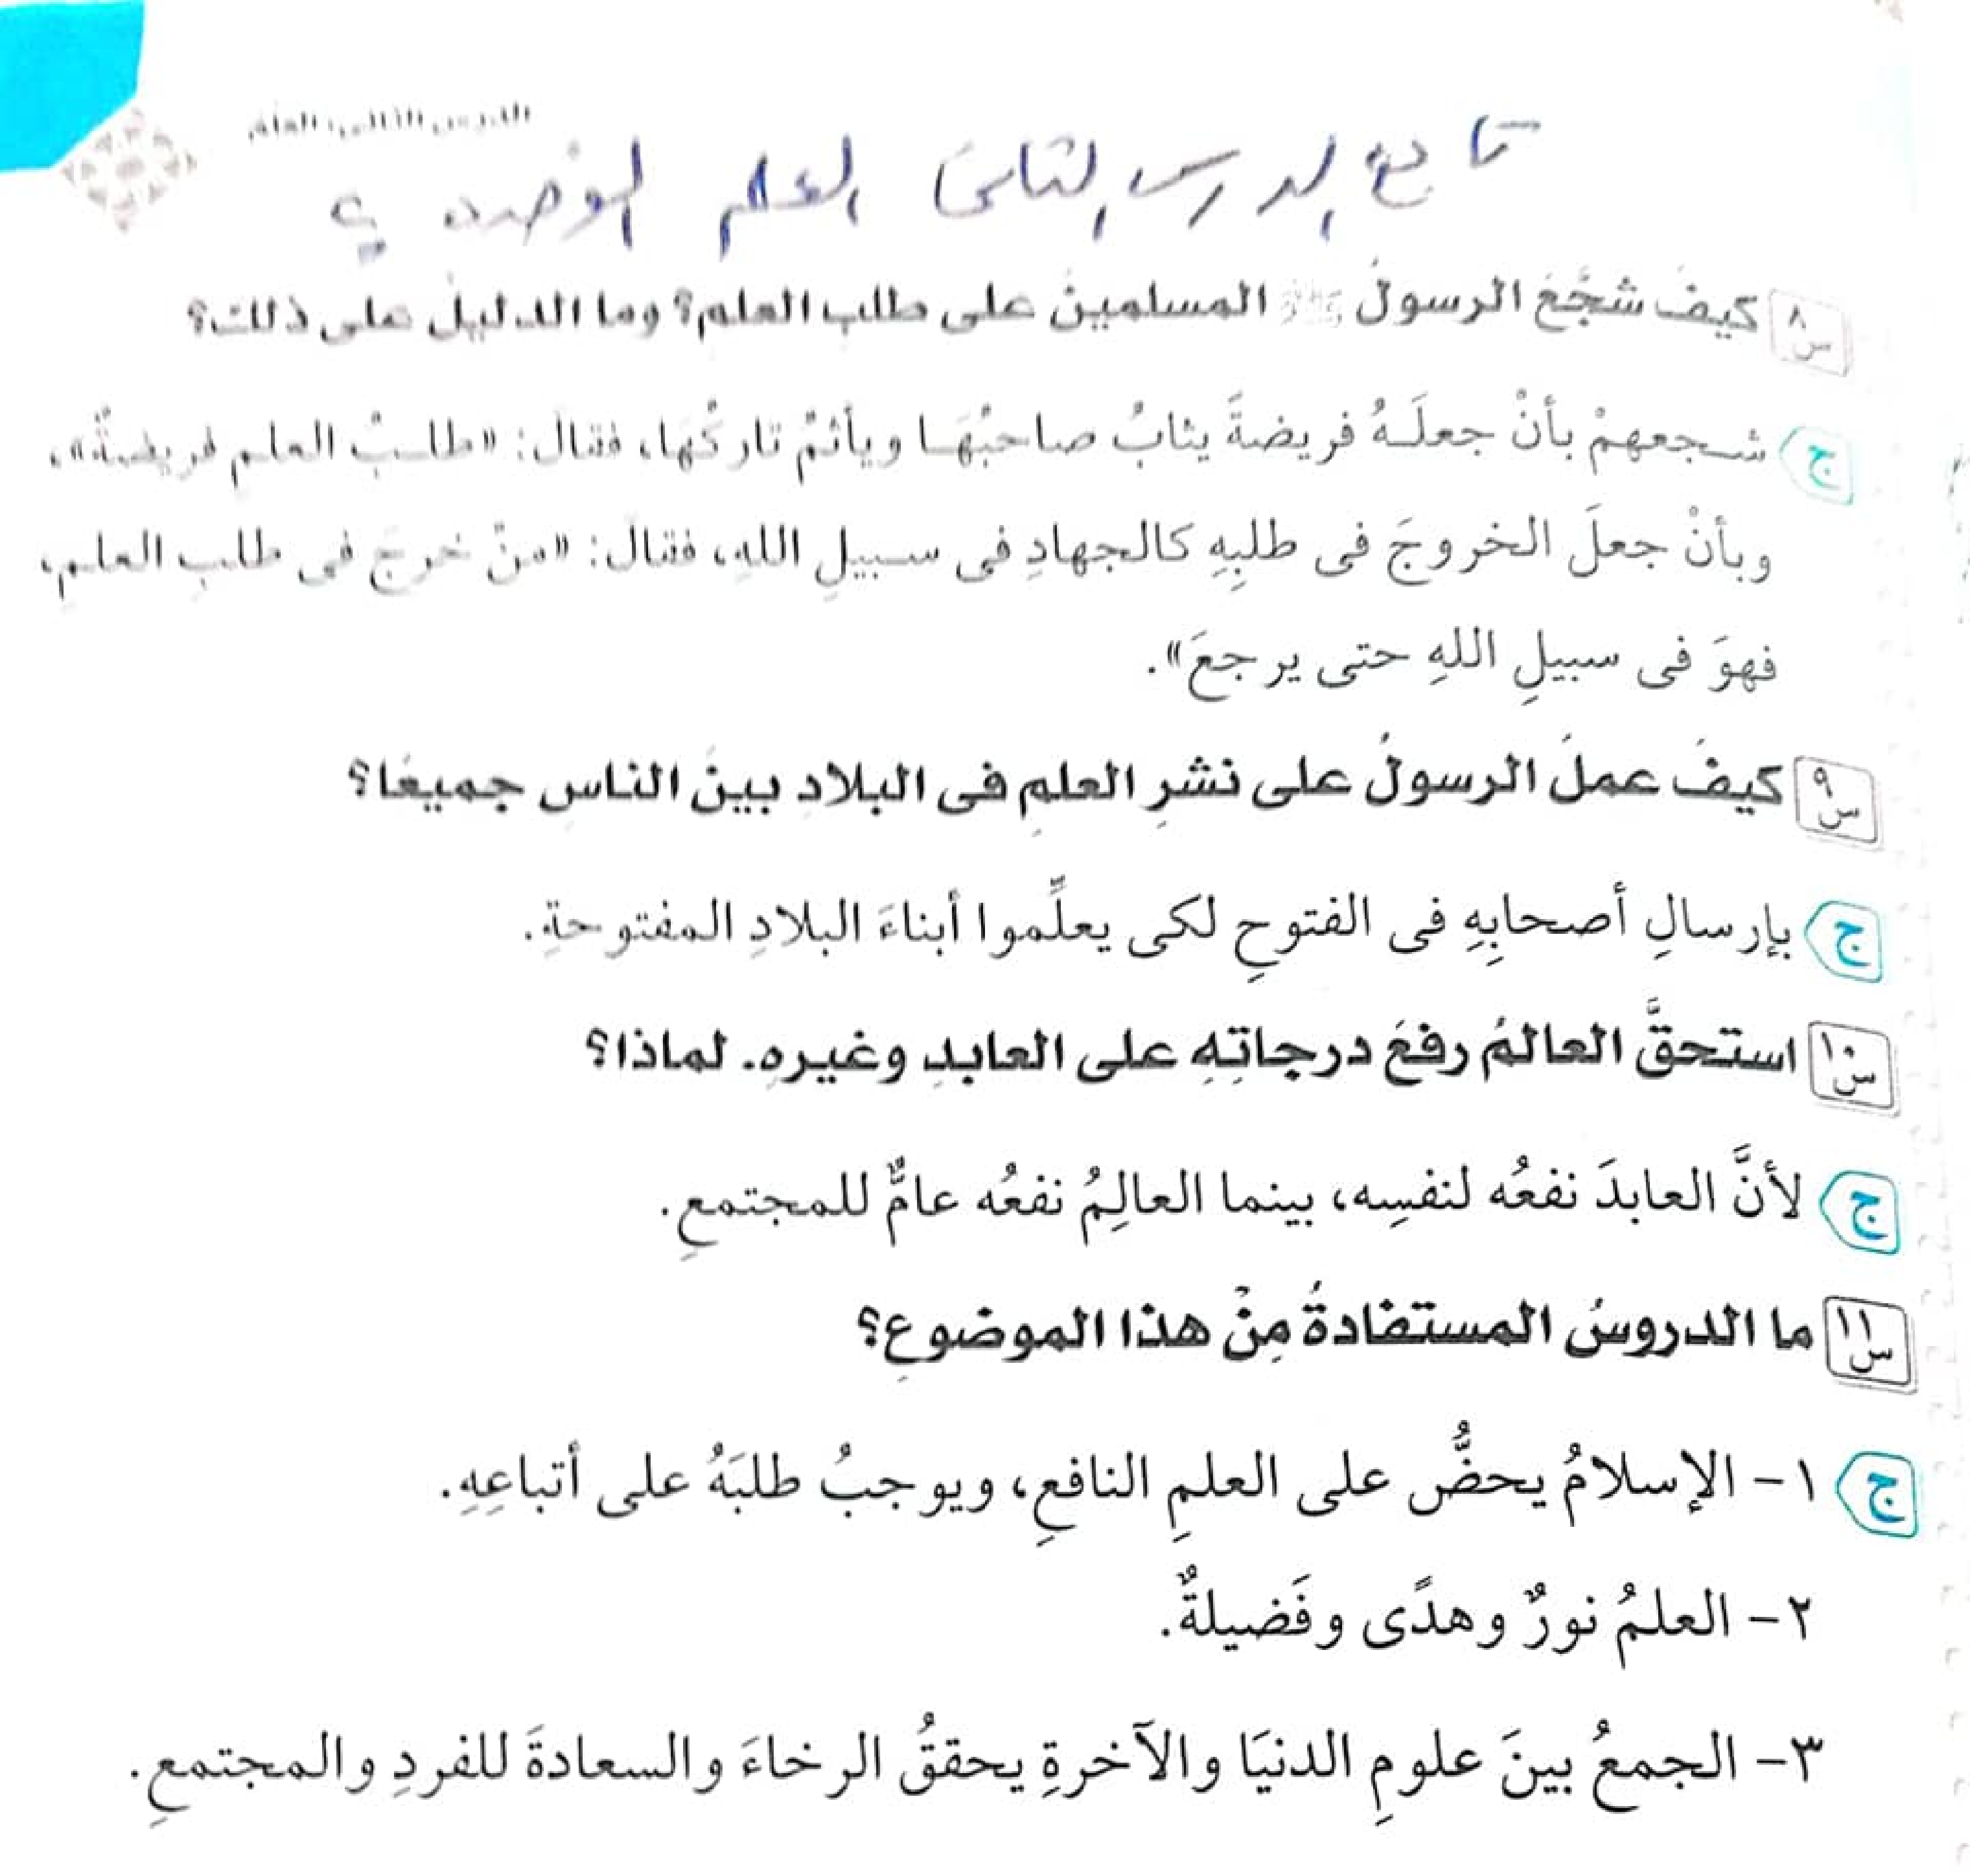 الدرس الثانى: العلم
تابع الدرس الثانى العلم الوحدة
س٨ كيفَ شجَّعَ الرسولُ ﷺ المسلمينَ على طلبِ العلم؟ وما الدليلُ على ذلك؟
ج شـجعهمْ بأنْ جعلَـهُ فريضةً يثابُ صاحبُهَـا ويأثمُ تاركُها، فقالَ: «طلـبُ العلم فريضـةٌ»،
وبأنْ جعلَ الخروجَ فى طلبِهِ كالجهادِ فى سـبيلِ اللهِ، فقالَ: «منْ خرجَ فى طلبِ العلمِ،
فهوَ فى سبيلِ اللهِ حتى يرجعَ».
س٩ كيفَ عملَ الرسولُ على نشرِ العلمِ فى البلادِ بينَ الناسِ جميعًا؟
ج بإرسالِ أصحابِهِ فى الفتوحِ لكى يعلِّموا أبناءَ البلادِ المفتوحةِ.
س١٠ استحقَّ العالمُ رفعَ درجاتِهِ على العابدِ وغيرهِ. لماذا؟
ج لأنَّ العابدَ نفعُه لنفسِه، بينما العالِمُ نفعُه عامٌّ للمجتمعِ.
س١١ ما الدروسُ المستفادةُ مِنْ هذا الموضوعِ؟
ج ١- الإسلامُ يحضُّ على العلمِ النافعِ، ويوجبُ طلبَهُ على أتباعِهِ.
٢- العلمُ نورٌ وهدًى وفَضيلةٌ.
٣- الجمعُ بينَ علومِ الدنيَا والآخرةِ يحققُ الرخاءَ والسعادةَ للفردِ والمجتمعِ.